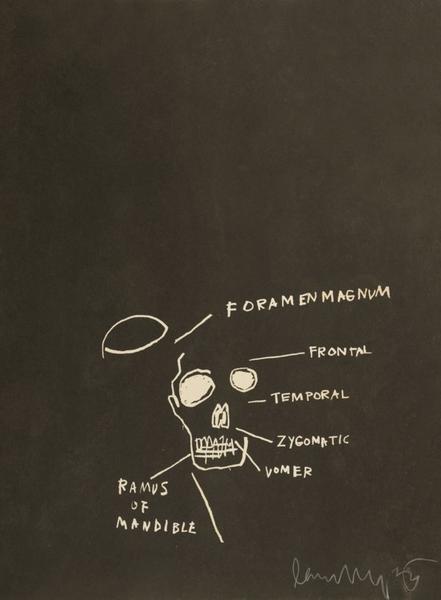 FORAMEN MAGNUM
FRONTAL
TEMPORAL
ZYGOMATIC
VOMER
RAMUS
OF
MANDIBLE